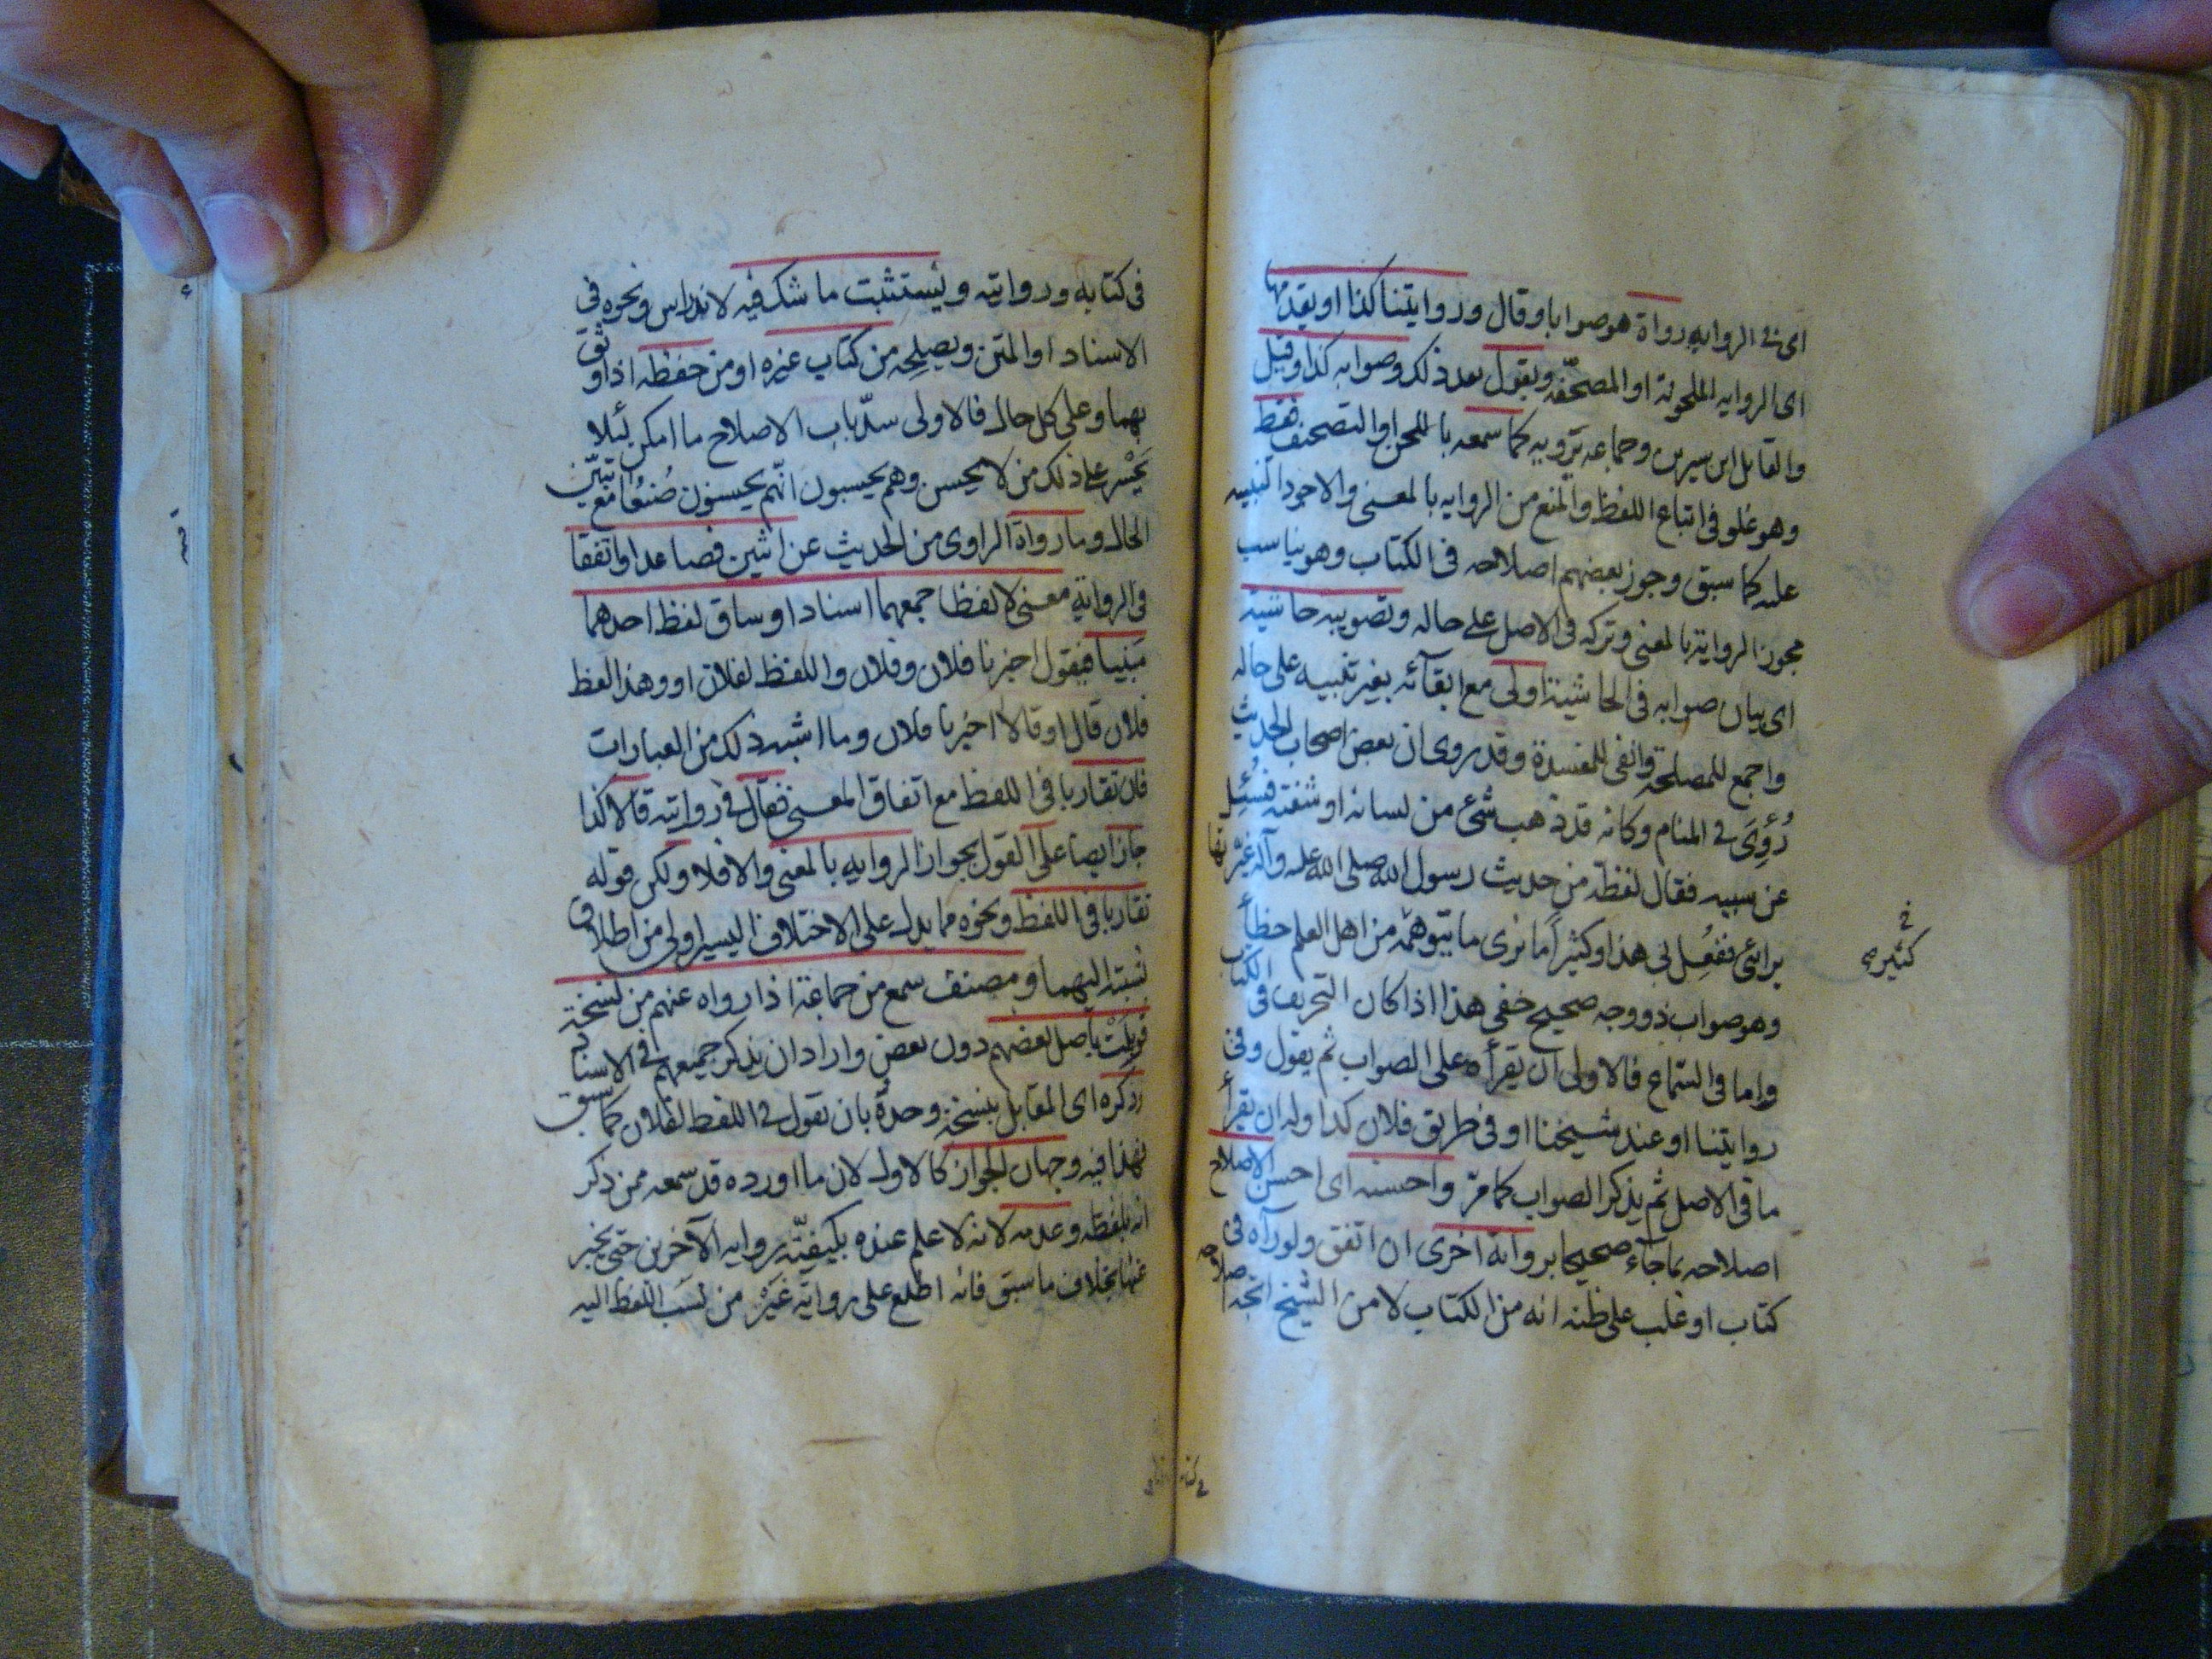 اى فى الروايه رواة هو صوابا وقال وروايتنا كذا او يقدمها
اى الروايه الملحونة او المصحّفه ويقول بعد ذلك وصوابه كذا وقيل
والقايل ابن سيرين وجماعه يرويه كما سمعه باللحن او التصحيف فقط
وهو غلو فى اتباع اللفظ والمنع من الروايه بالمعنى والاجود التنبيه
عليه كما سبق وجوز بعضهم اصلاحه فى الكتاب وهو يناسب
مجوز الرواية بالمعنى وتركه فى الاصل على حاله وتصويبه حاشية
اى بيان صوابه فى الحاشية اولى مع ابقآئه بغير تغييره على حاله
واجمع للمصلحة وانفى للمفسدة وقد روى ان بعض اصحاب الحديث
رُؤِىَ فى المنام وكانه قد ذهب شئ من لسانه او شفته فسُئِل
عن سببه فقال لفظة من حديث رسول الله صلى الله عليه وآله غيّرتها
برائى ففُعِل بى هذا وكثيراً ما نرى ما يتوهّمه من اهل العلم خطأ
كثيره
وهو صواب ذو وجه صحيح خفى هذا اذا كان التحريف فى الكتاب
واما فى السّماع فالاولى ان يقرأه على الصواب ثم يقول وفى
روايتنا او عند شيخنا او فى طريق فلان كذا وله ان يقرأ
ما فى الاصل ثم يذكر الصواب كما مرّ واحسنه اى احسن الاصلاح
اصلاحه بما جآء صحيحا برواية اخرى ان اتفق ولو رآه فى
كتاب او غلب على ظنه انه من الكتاب لا من الشيخ اتجه اصلاحه
فى كتابه وروايته ويستثبت ما شك فيه لاندراس ونحوه فى
الاسناد او المتن ويصلحه من كتاب غيره او من حفظه اذا وثق
بهما وعلى كل حال فالاولى سدّ باب الاصلاح ما امكن لئلا
يَجْسُر على ذلك من لا يحسن وهم يحسبون انّهم يحسنون صُنعًا مع تبيّن
الحال وما رواه الراوى من الحديث عن اثنين فصاعدا واتفقا
فى الرواية معنى لا لفظا جمعهما اسنادا وساق لفظ احدهما
مبَيِنا فيقول اخبرنا فلان وفلان واللفظ لفلان او وهذا لفظ
فلان قال او قالا اخبرنا فلان وما اشبه ذلك من العبارات
فان تقاربا فى اللفظ مع اتفاق المعنى فقال فى روايته قالا كذا
جاز ايضا على القول بجواز الروايه بالمعنى والا فلا ولكن قوله
تقاربا فى اللفظ ونحوه مما يدل على الاختلاف اليسير اولى من اطلاق
نسبته اليهما ومصنف سمع من جماعة اذا رواه عنهم من نسخة
قوبِلَتْ باصل بعضهم دون بعض واراد ان يذكر جميعهم فى الاسناد
وذكره اى المقابل بنسخته وحدة بان يقول فى اللفظ لفلان كما سبق
فهذا فيه وجهان الجواز كالاول لان ما اورده قد سمعه ممن ذكر
انه بلفظه وعدمه لانه لا علم عنده بكيفيّة روايه الآخرين حتى يخبر
عنها بخلاف ما سبق فانه اطلع على رواية غيْرِ من نسَب اللفظ اليه